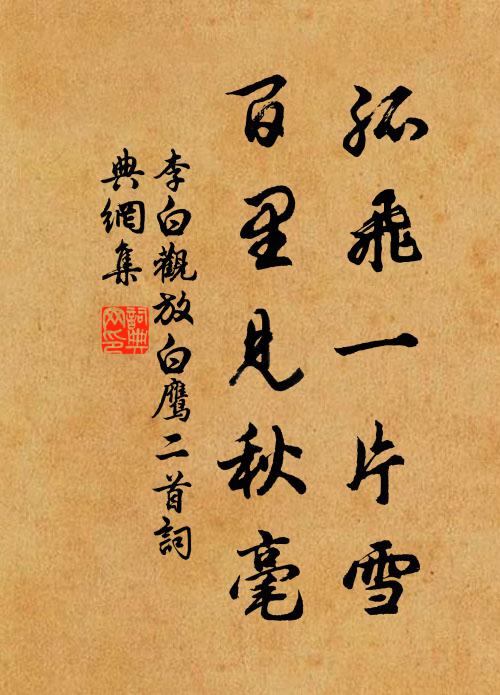 孤飛一片雪
百里見秋毫
李白觀放白鷹二首詞
典網集
詞典網印